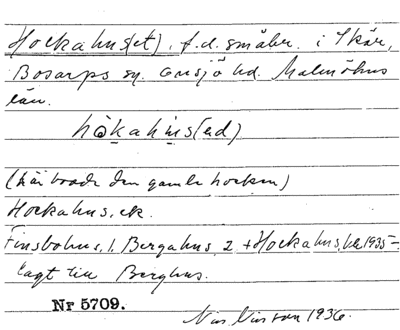 Hockahus(et), f.d. småbr. i Skår,
Bosarps sn. Onsjö hd. Malmöhus
län.
håkahus(ed)
(här bodde den gamle hocken)
Hockahus, ek.
Finsbohus, 1, Bergahus 2 + Hockahus, 1935
lagt till Berghus.
Nr 5709.
Nils Nilsson 1936.